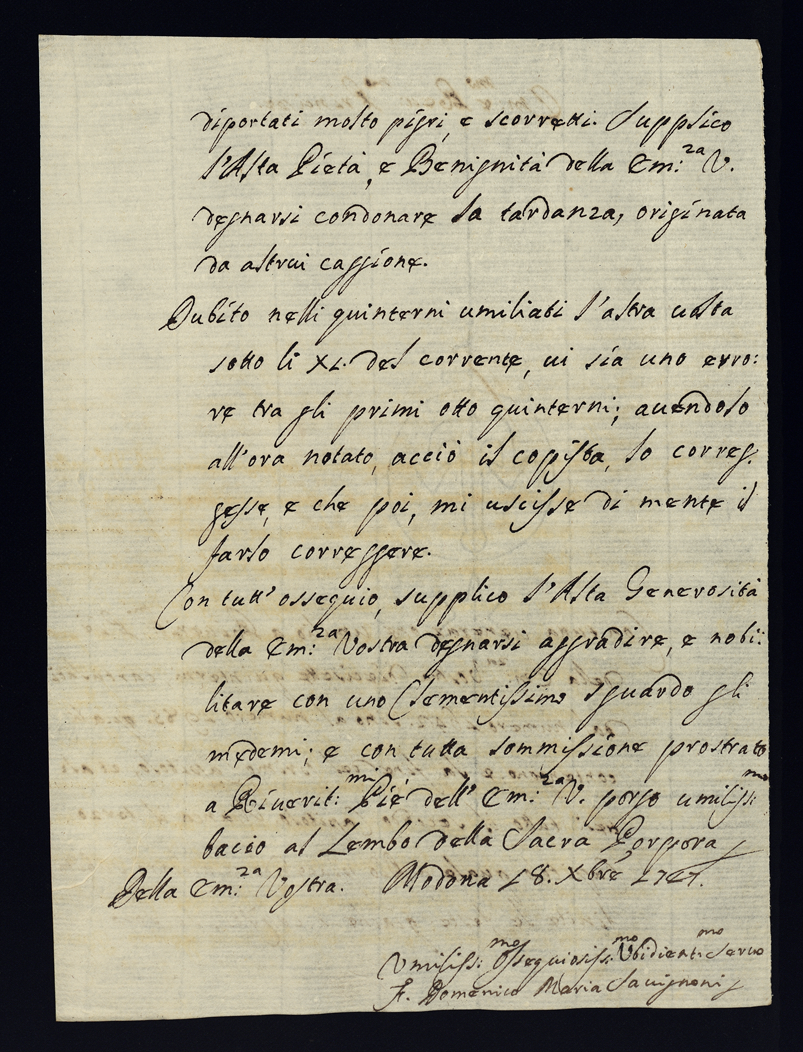 diportati molto pigri, e scorretti. Supplico
l'Alta Pietà, e Benignità della Em:za V.
degnarsi condonare la tardanza, originata
da altrui caggione.
Dubito nelli quinterni umiliati l'altra uolta
sotto li XI. del corrente, ui sia uno erro:
re tra gli primi otto quinterni; auendolo
all'ora notato, acciò il copista, lo correg:
gesse, e che poi, mi uscisse di mente il
farlo correggere.
Con tutt'ossequio, supplico l'Alta Generosità
della Em:za Vostra degnarsi aggradire, e nobi:
litare con uno Clementissimo sguardo gli
medemi; e con tutta sommissione prostrato
a Riuerit:mi Piè dell'Em:za V. porgo umiliss:mo
bacio al Lembo della Sacra Porpora
Della Em:za Vostra. Modona 18. Xbre 1727.
Umiliss:mo Ossequiosiss:mo Vbidient:mo Seruo
F. Domenico Maria Sauignoni